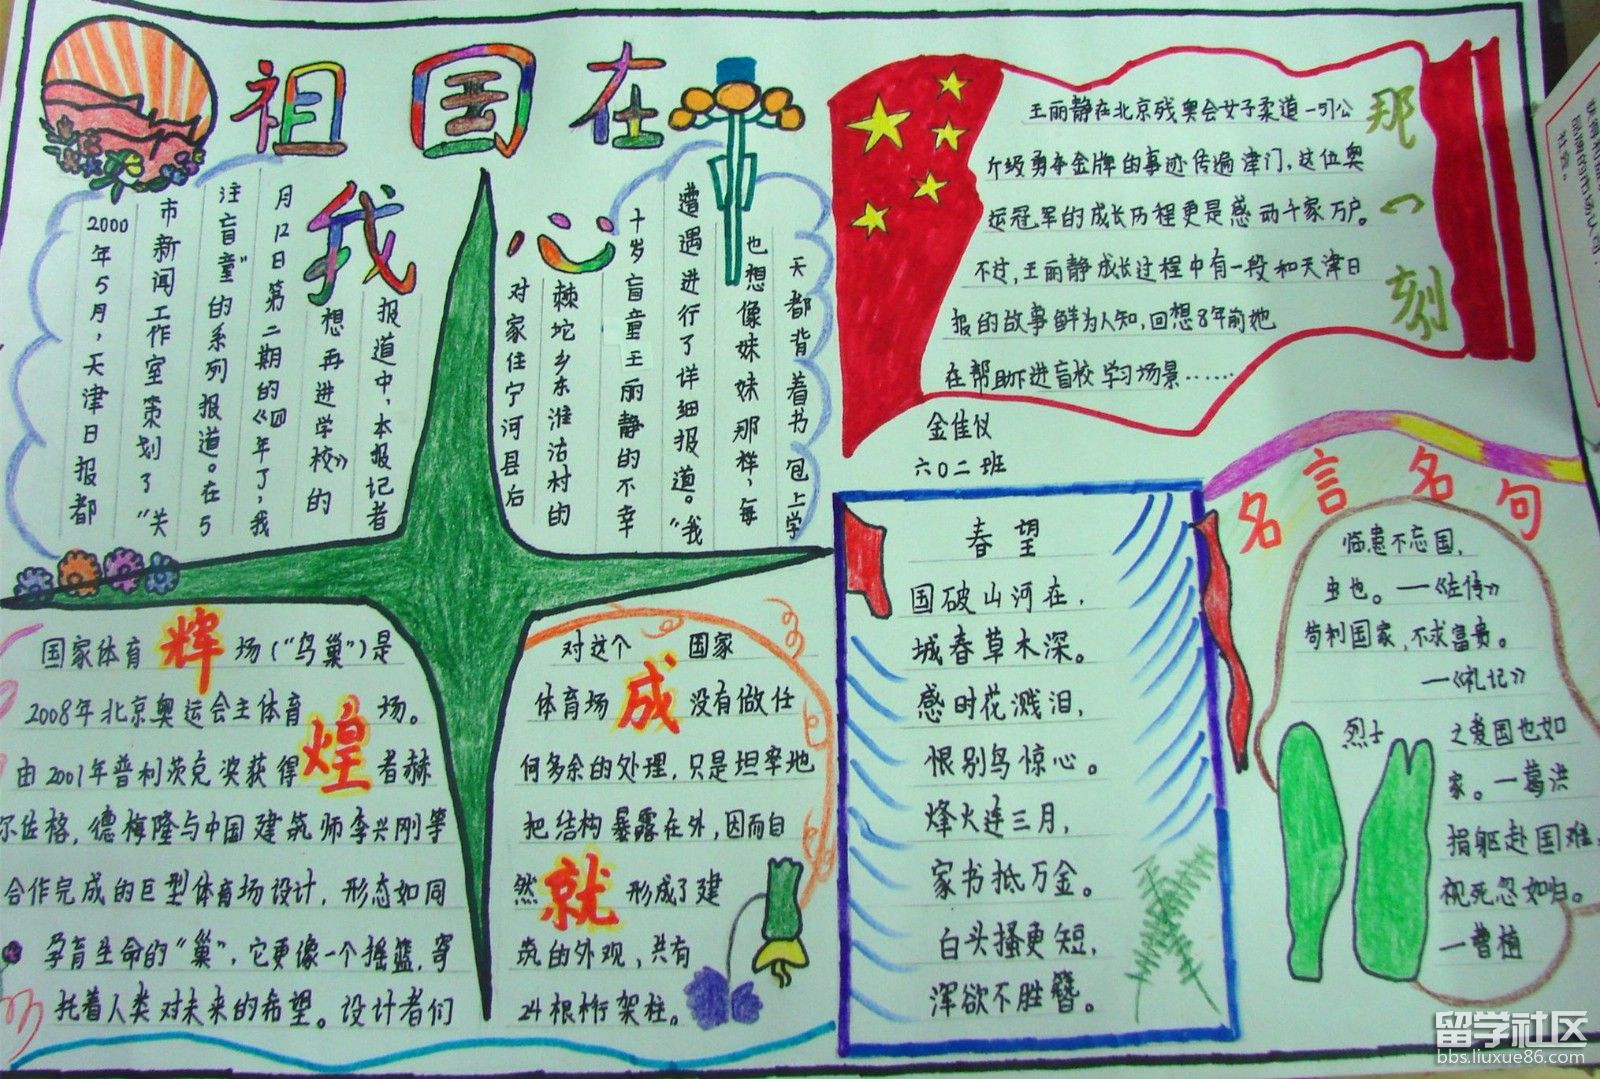 祖国在
我心
2000年5月，天津日报都
市新闻工作室策划了“关
注盲童”的系列报道。在5
月12日第二期的《四年了，我
想再进学校》的
报道中，本报记者
对家住宁河县后
棘坨乡东淮沽村的
十岁盲童王丽静的不幸
遭遇进行了详细报道。“我
也想像妹妹那样，每
天都背着书包上学
那一刻
王丽静在北京残奥会女子柔道一51公
斤级勇夺金牌的事迹传遍津门，这位奥
运冠军的成长历程更是感动千家万户。
不过，王丽静成长过程中有一段和天津日
报的故事鲜为人知，回想8年前她
在帮助下进盲校学习场景……
金佳仪
六〇二班
辉煌
国家体育场（“鸟巢”）是
2008年北京奥运会主体育场。
由2001年普利茨克奖获得者赫
尔佐格，德梅隆与中国建筑师李兴刚等
合作完成的巨型体育场设计，形态如同
孕育生命的“巢”，它更像一个摇篮，寄
托着人类对未来的希望。设计者们
成就
对这个国家
体育场没有做任
何多余的处理，只是坦率地
把结构暴露在外，因而自
然形成了建
筑的外观，共有
24根桁架柱。
春望
国破山河在，
城春草木深。
感时花溅泪，
恨别鸟惊心。
烽火连三月，
家书抵万金。
白头搔更短，
浑欲不胜簪。
名言名句
临患不忘国，
虫也。—《左传》
苟利国家，不求富贵。
—《礼记》
烈士之爱国也如
家。—葛洪
捐躯赴国难，
视死忽如归。
—曹植
留学社区
bbs.liuxue86.com